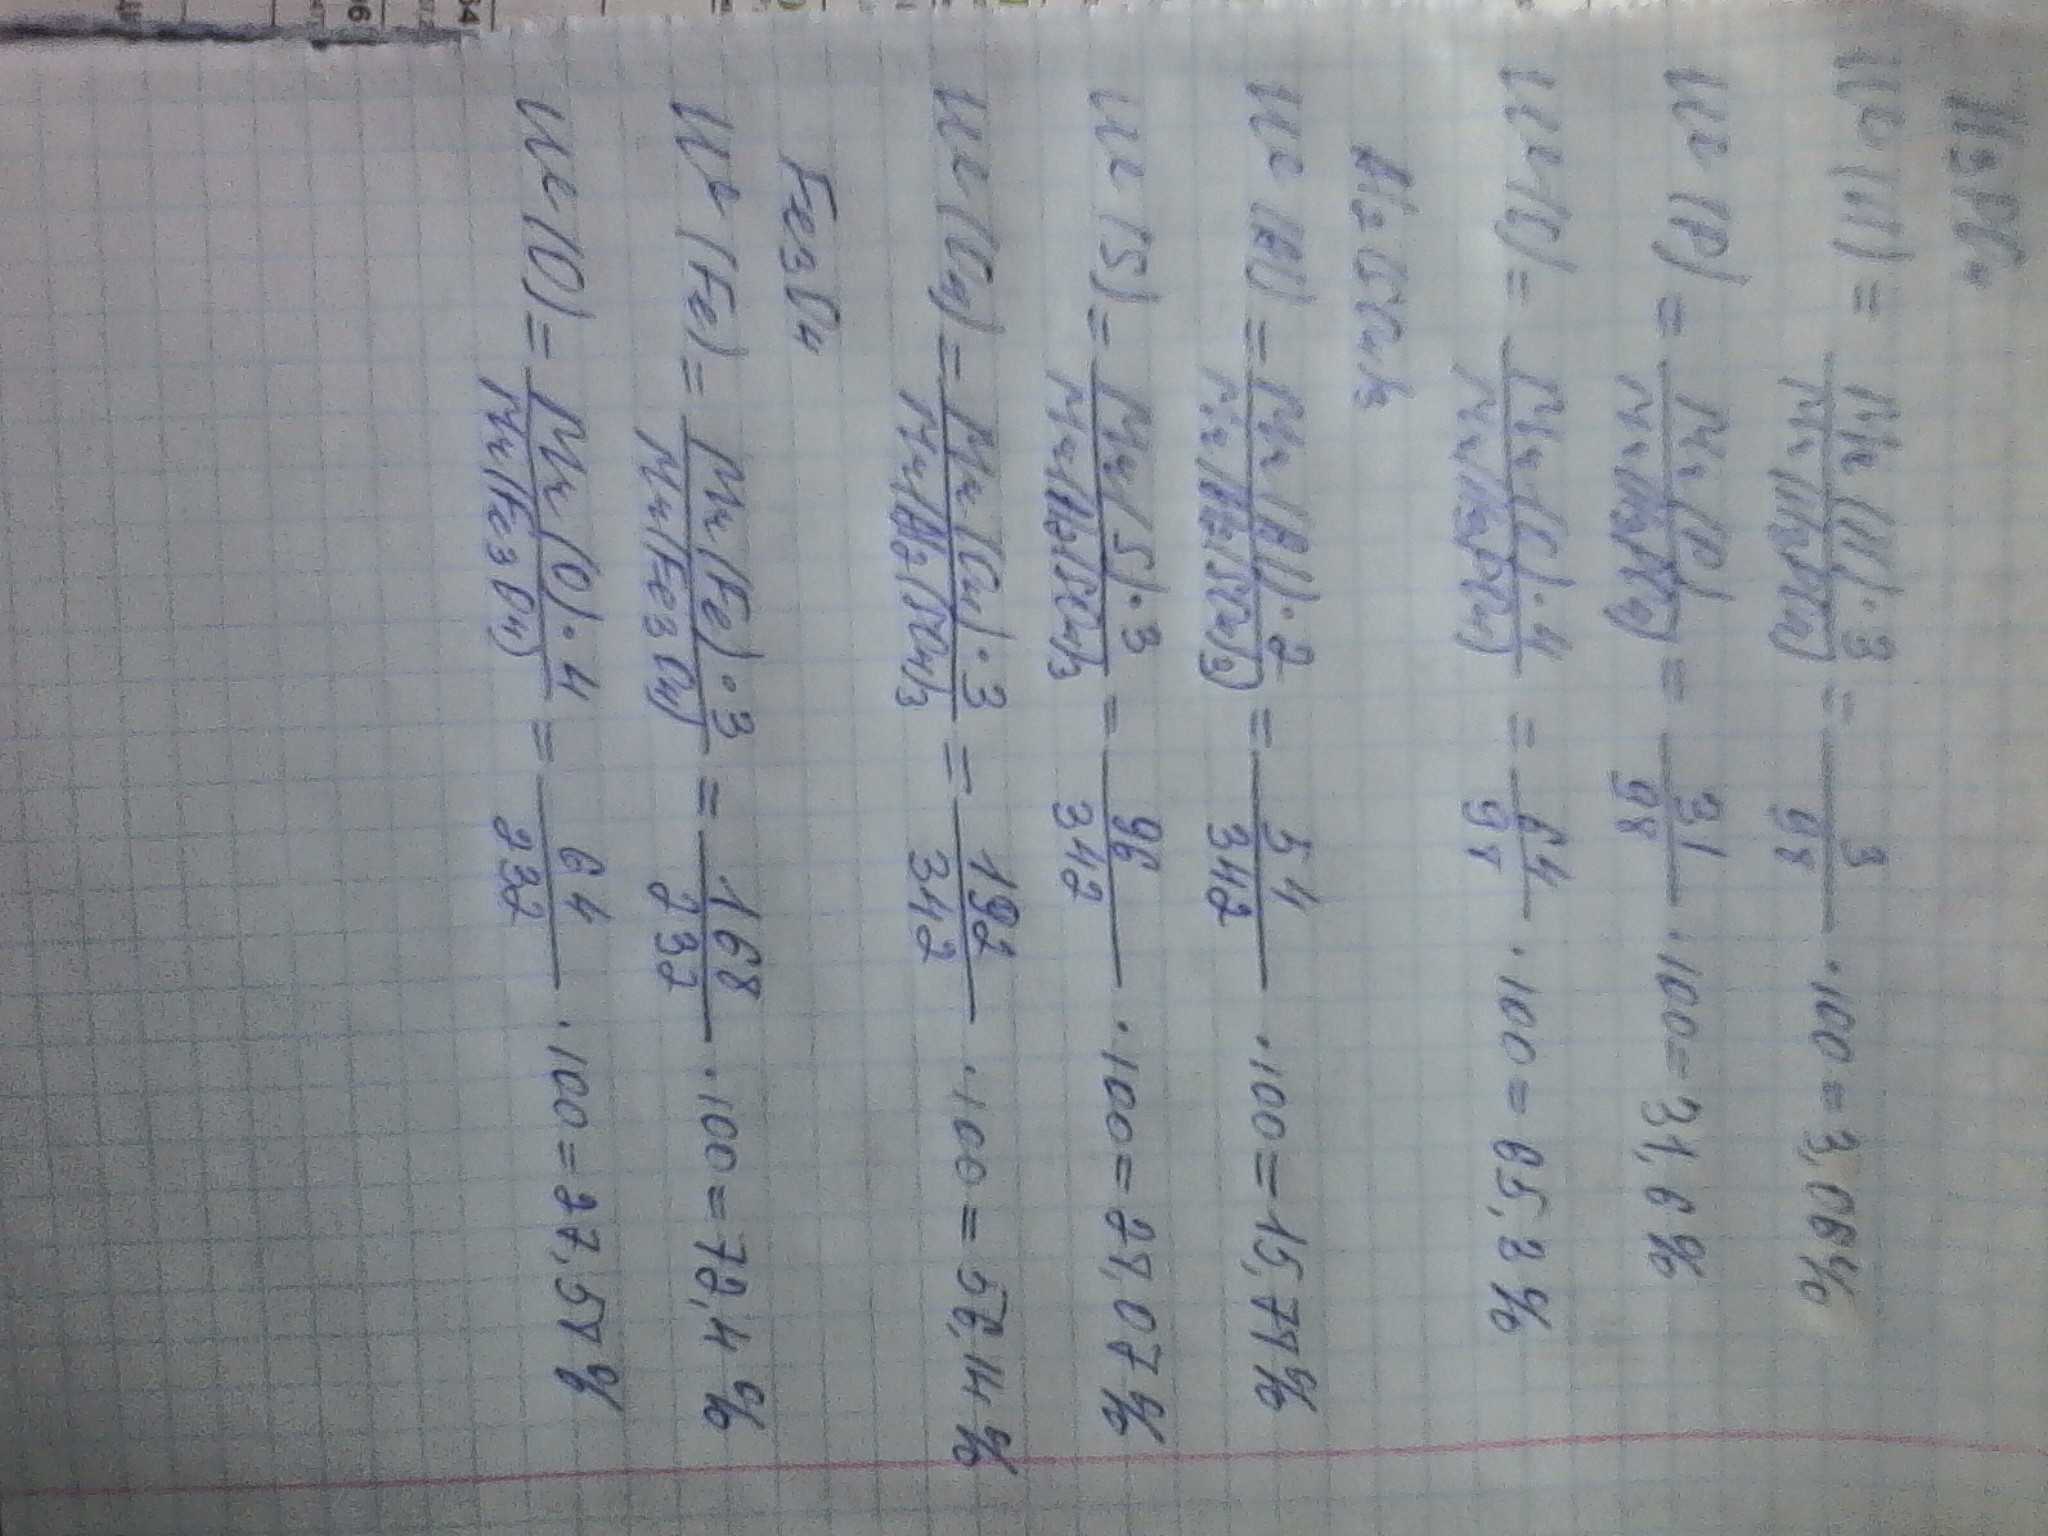 H₃PO₄
W(H) = Mr(H)·3 / Mr(H₃PO₄) = 3/98 ·100 = 3,06%
W(P) = Mr(P) / Mr(H₃PO₄) = 31/98 ·100 = 31,6%
W(O) = Mr(O)·4 / Mr(H₃PO₄) = 64/98 ·100 = 65,3%
Al₂(SO₄)₃
W(Al) = Mr(Al)·2 / Mr(Al₂(SO₄)₃) = 54/342 ·100 = 15,79%
W(S) = Mr(S)·3 / Mr(Al₂(SO₄)₃ = 96/342 ·100 = 28,07%
W(O₄) = Mr(O₄)·3 / Mr(Al₂(SO₄)₃ = 192/342 ·100 = 56,14%
Fe₃O₄
W(Fe) = Mr(Fe)·3 / Mr(Fe₃O₄) = 168/232 ·100 = 72,4%
W(O) = Mr(O)·4 / Mr(Fe₃O₄) = 64/232 ·100 = 27,58%